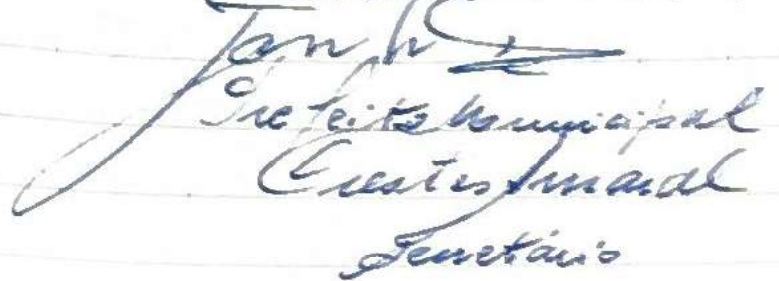 Prefeito Municipal
Orestes Amaral
Secretário